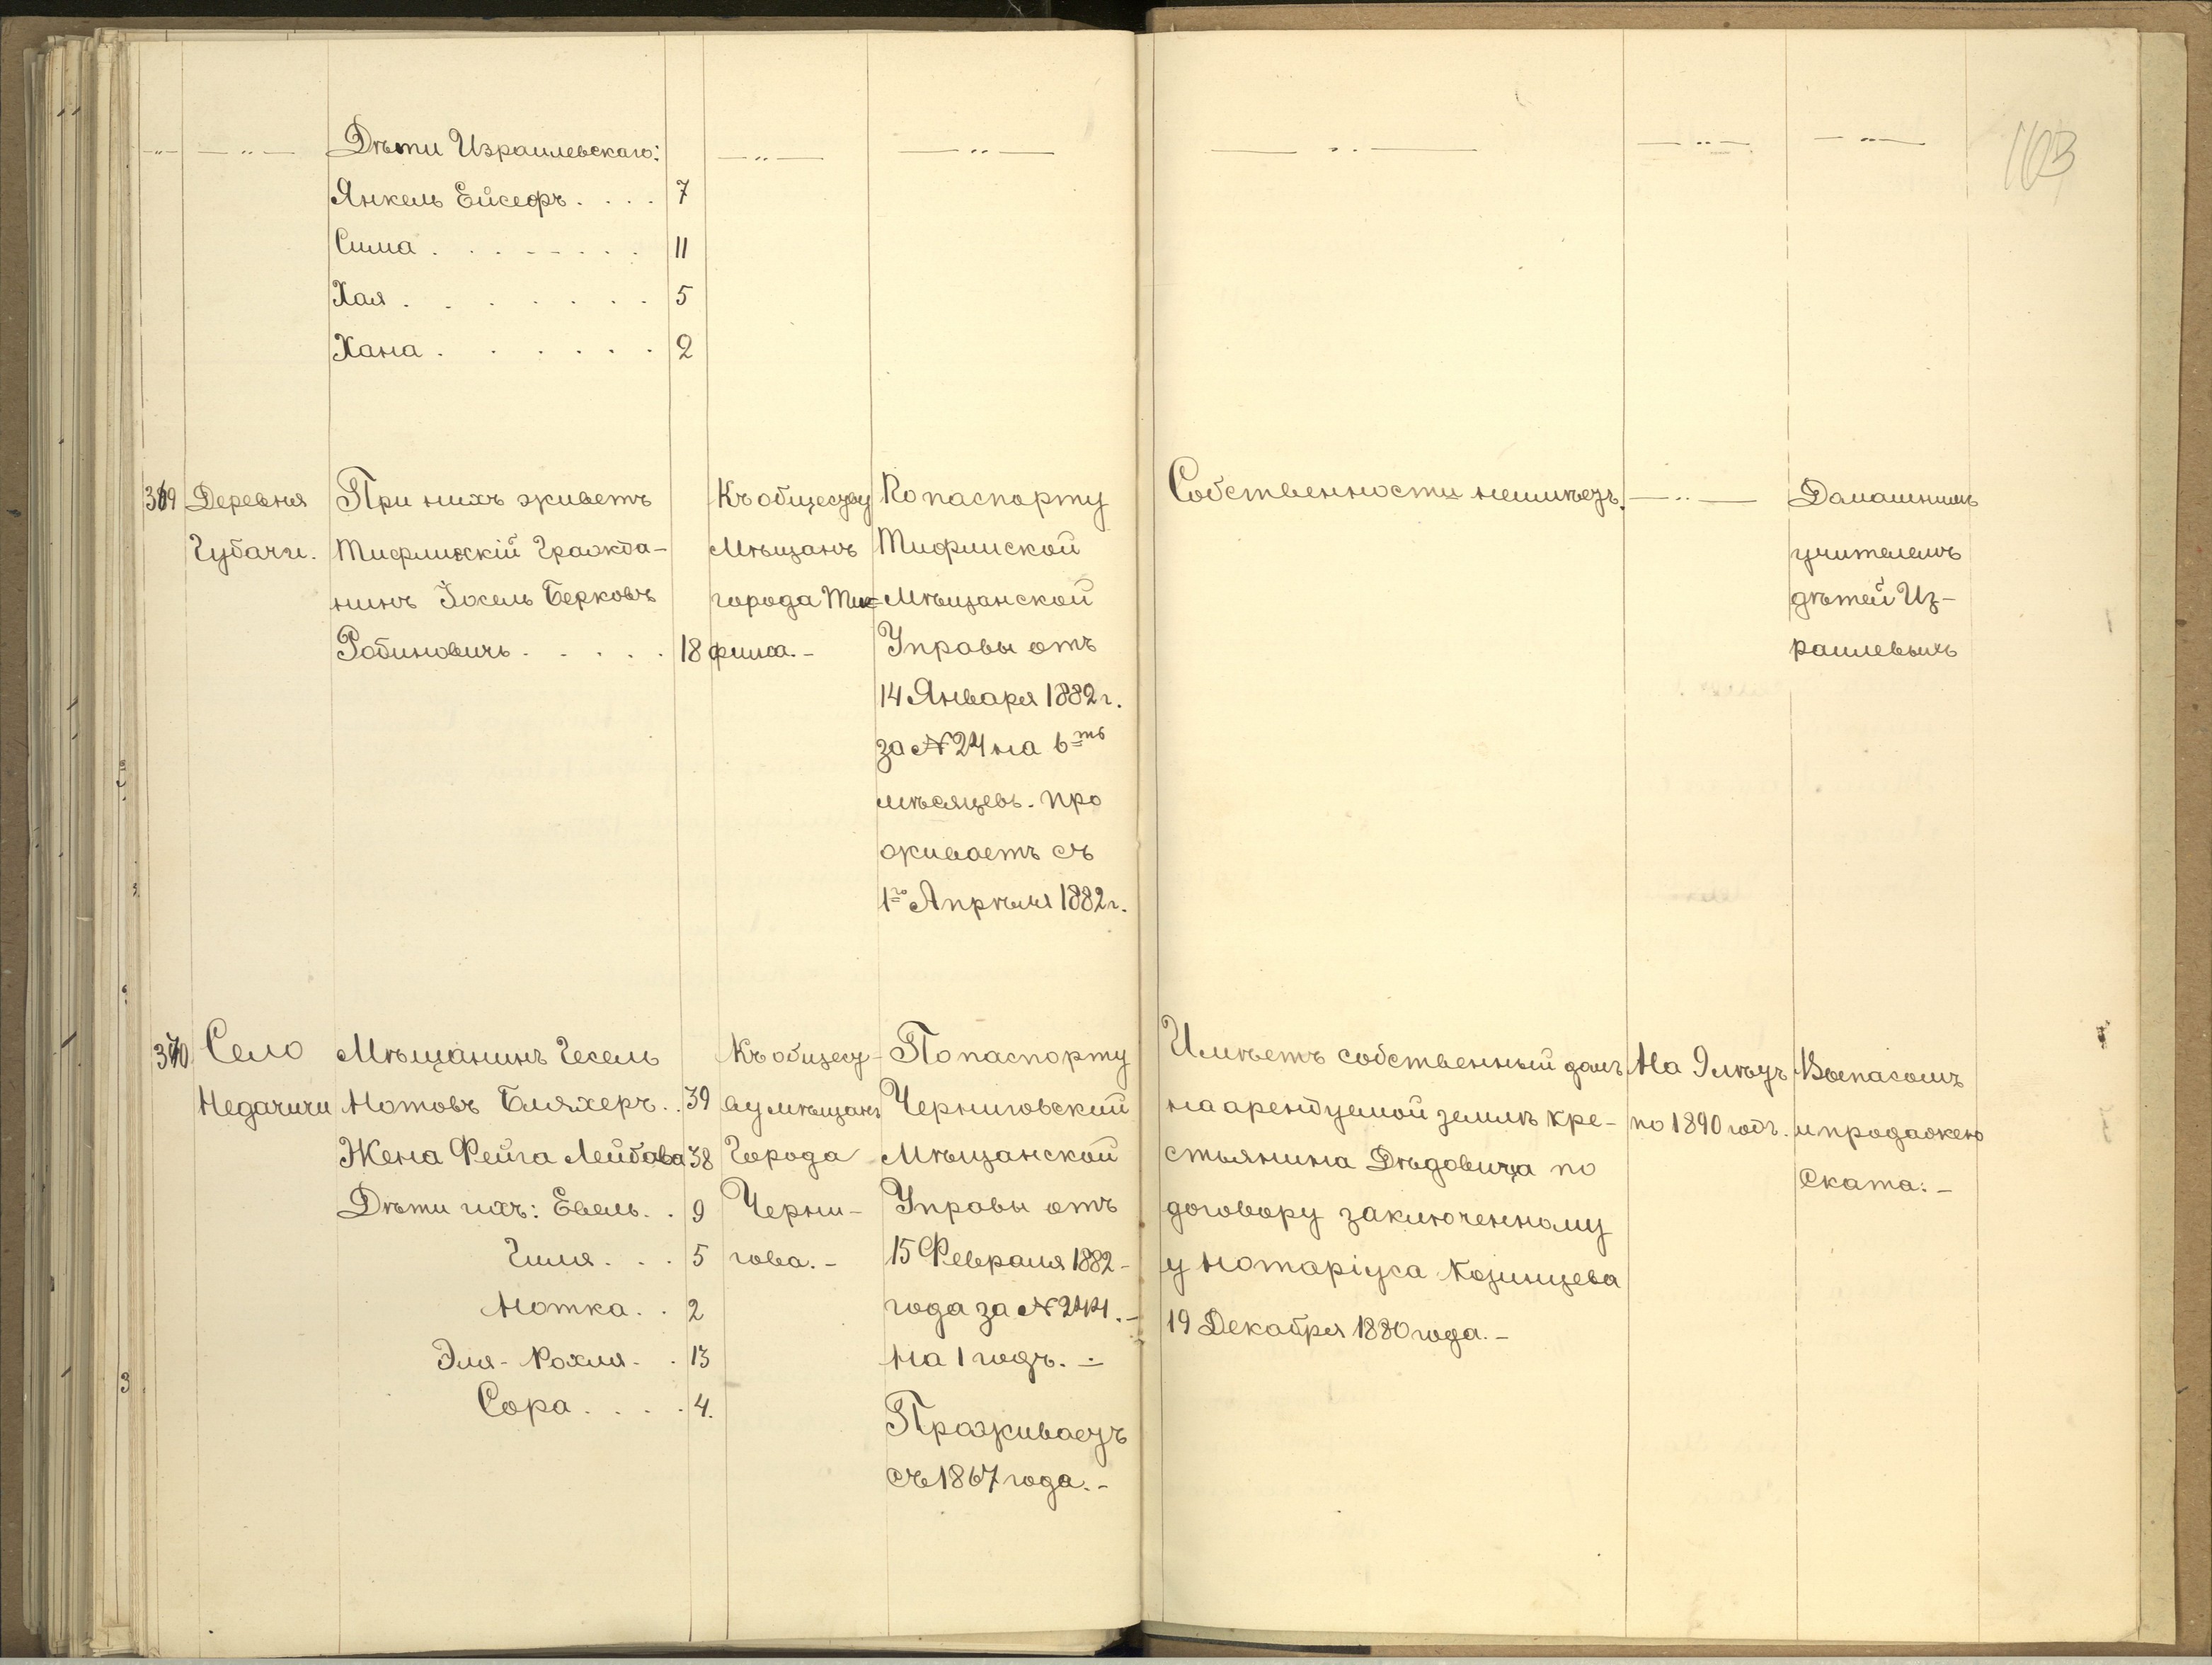 —"— — " — Дѣти Израилевскаго: — " — — " — — " — — " — — " — 103
Янкель Ейсефъ . . . . 7
Сима . . . . . . . . 11
Хая . . . . . . . 5
Хана . . . . . . 2
369 Деревня
Губачи.
При нихъ живетъ
Тифлискій Гражда-
нинъ Іосель Берковъ
Рабиновичъ . . . . . 18
Къ обществу
Мѣщанъ
города Ти-
флиса. -
По паспорту
Тифлиской
Мѣщанской
Управы отъ
14 Января 1882 г.
за № 24 на 6-ть
мѣсяцевъ. Про
живаетъ съ
1го Апрѣля 1882 г.
Собственности неимѣетъ. — " —
Домашнимъ
учителемъ
дѣтей Из-
раилевыхъ
370 Село
Недачичи
Мѣщанинъ Гесель
Нотовъ Бляхеръ . . 39
Жена Фейга Лейбова 38
Дѣти ихъ: Евель . . 9
Гиля . . . 5
Нотка . . 2
Эля-Рохля . . 13
Сора . . . . 4.
Къ общест-
ву мѣщанъ
Города
Черни-
гова. -
По паспорту
Черниговский
Мѣщанской
Управы отъ
15 Февраля 1882 -
года за № 244. -
На 1 годъ. -
Проживаетъ
съ 1867 года. -
Имѣетъ собственный домъ
на арендуемой землѣ кре-
стьянина Дѣдовича по
договору заключенному
у Нотаріуса Козинцева
19 Декабря 1880 года. -
На 9 лѣтъ
по 1890 годъ.
Выпасомъ
и продажею
Скота: -